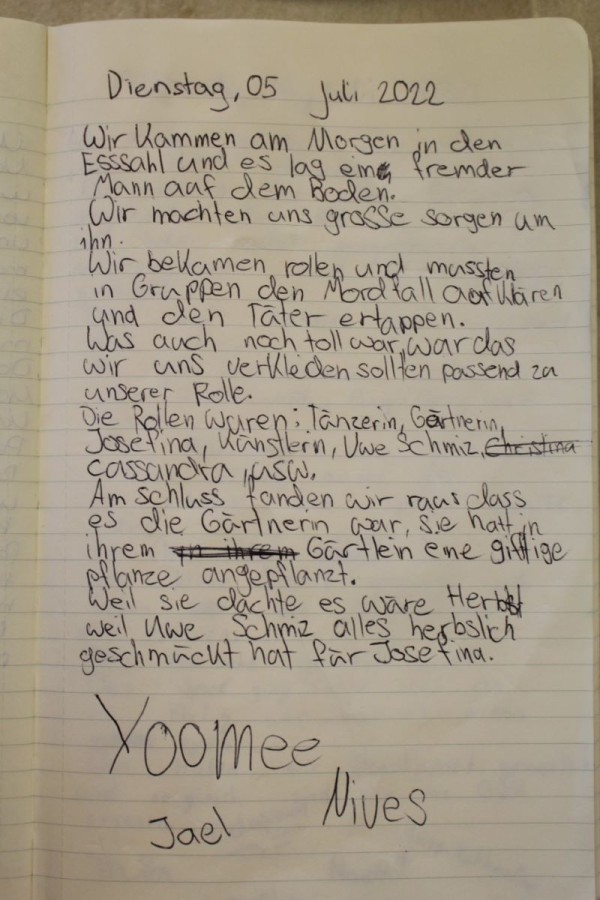 Dienstag, 05 Juli 2022
Wir kammen am Morgen in den
Esssahl und es lag ein fremder
Mann auf dem Boden.
Wir machten uns grosse sorgen um
ihn.
Wir bekamen rollen und mussten
in Gruppen den Mordfall aufklären
und den Täter ertappen.
Was auch noch toll war, war das
wir uns verkleden sollten passend zu
unserer Rolle.
Die Rollen waren: Tänzerin, Gärtnerin,
Josefina, Künstlern, Uwe Schmiz, Christina
cassandra, usw.
Am schluss fanden wir raus dass
es die Gärtnerin war, sie hatt in
ihrem in ihrem Gärtlein eine giftige
pflanze angepflanzt.
Weil sie dachte es wäre Herbst
weil Uwe Schmiz alles herbslich
geschmückt hat für Josefina.
Yoomee
Nives
Jael